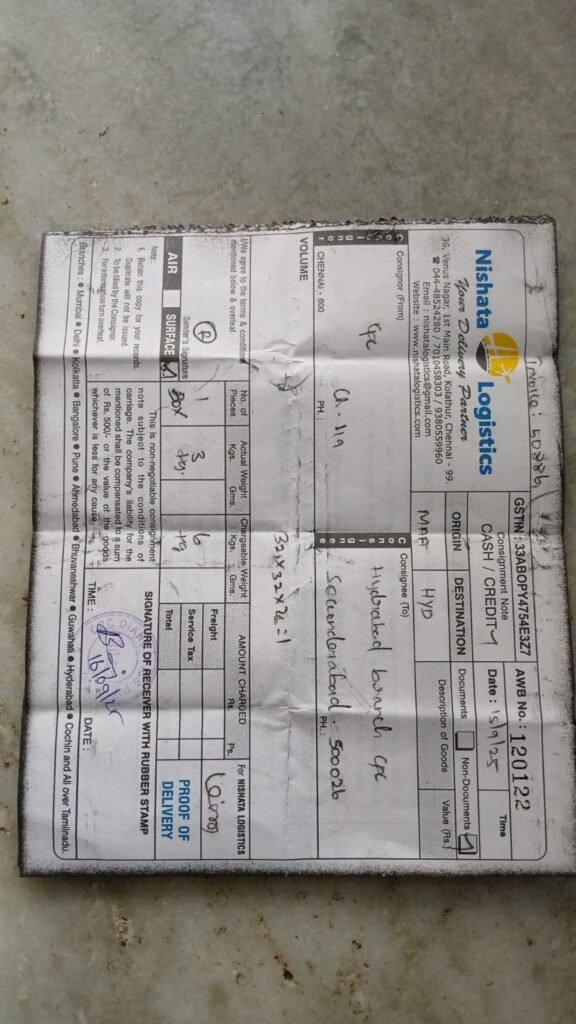 Invoice : 50286
Nishata Logistics
Your Delivery Partner
36, Venus Nagar, 1st Main Road, Kolathur, Chennai - 99.
☎ 044-48524280 / 7010458303 / 9380559960
Email : nishatalogistics@gmail.com
Website : www.nishatalogistics.com
GSTIN : 33ABOPY4754E3Z7
AWB No. : 120122
Consignment Note
CASH / CREDIT
Date : 15/9/25
Time
ORIGIN
DESTINATION
Documents
Non-Documents
MAA
HYD
Description of Goods
Value (Rs.)
Consignor
Consignor (From)
Ch - 49
CHENNAI - 600
PH. :
Consignee
Consignee (To)
Hydrabad branch
Secunderabad - 500026
PH. :
VOLUME
32x32x26=1
I/We agree to the terms & conditions
mentioned below & overleaf
Sender's Signature
AIR
SURFACE
No. of Pieces
Actual Weight
Kgs. Gms.
Chargeable Weight
Kgs. Gms.
AMOUNT CHARGED
Rs. Ps.
1
BOX
3
kg.
6
kg
Freight
Service Tax
Total
For NISHATA LOGISTICS
PROOF OF
DELIVERY
Note :
1. Retain this copy for your records.
Duplicate will not be issued
2. To be filled by the Consignor.
3. For information turn overleaf.
This is non-negotiable consignment
note subject to the conditions of
carriage. The company's liability for the
mentioned shall be compensated to a sum
of Rs. 500/- or the value of the goods
whichever is less for any cause.
SIGNATURE OF RECEIVER WITH RUBBER STAMP
16/09/25
TIME :
DATE :
Branches : ● Mumbai ● Delhi ● Kolkatta ● Bangalore ● Pune ● Ahmedabad ● Bhuvaneshwar ● Guwahati ● Hyderabad ● Cochin and All over Tamilnadu.